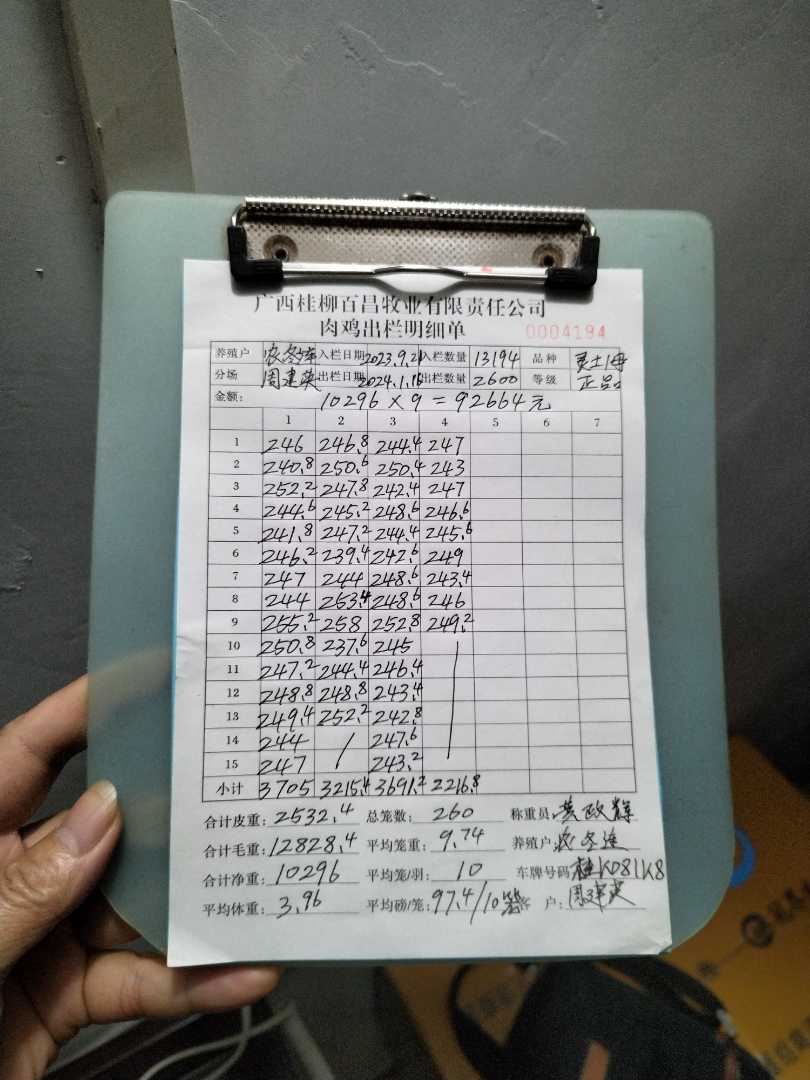 广西桂柳百昌牧业有限责任公司
肉鸡出栏明细单 0004194
养殖户 入栏日期 2023.9.21 入栏数量 13194 品种
分场 周建英 出栏日期 2024.1.16 出栏数量 2600 等级 正品
金额: 10296 × 9 = 92664元
1 2 3 4 5 6 7
1 246 246.8 244.4 247
2 240.8 250.6 250.4 243
3 252.2 247.8 242.4 247
4 244.6 245.2 248.6 246.6
5 241.8 247.2 244.4 245.6
6 246.2 239.4 242.6 249
7 247 244 248.6 243.4
8 244 253.4 248.6 246
9 255.2 258 252.8 249.2
10 250.8 237.6 245
11 247.2 244.4 246.4
12 248.8 248.8 243.4
13 249.4 252.2 242.8
14 244 / 247.6
15 247 243.2
小计 3705 3215.4 3691.2 2216.8
合计皮重: 2532.4 总笼数: 260 称重员: 黄政辉
合计毛重: 12828.4 平均笼重: 9.74 养殖户:
合计净重: 10296 平均笼/羽: 10 车牌号码: 桂K081K8
平均体重: 3.96 平均磅/笼: 97.4/10笼 客 户: 周建英